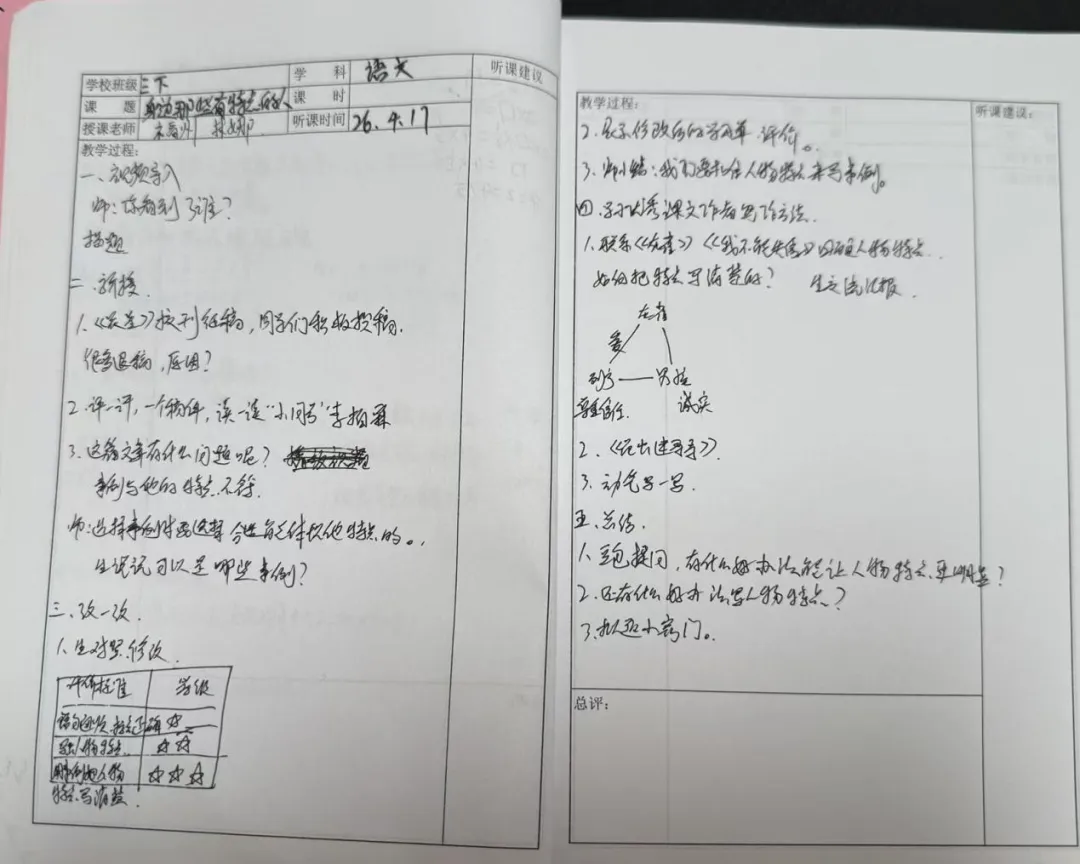 学校班级 三下
学 科 语文
听课建议
课 题 身边那些有特点的人
课 时
授课老师
听课时间 26.4.17
教学过程:
一、视频导入
师:你看到了谁?
揭题
二、新授
1.校刊组稿,同学们积极投稿.
但是退稿,原因?
2.评一评,一个稿件,读一读“小同学”李
3.这篇文章有什么问题呢?
事例与他的特点不符.
师:选择事例时要选择合适能体现他特点的。
生说说可以是哪些事例?
三、改一改.
1.生对照修改.
评价标准 等级
语句通顺,标点正确 ☆
写出人物特点 ☆☆
用事例把人物 ☆☆☆
特点写清楚.
教学过程:
听课建议:
2.展示修改后的学习单,评价。
3.师小结:我们要抓住人物特点来写事例。
四.学习优秀课文作者写作方法.
1.联系《》《我不能失信》回顾人物特点.
如何把特点写清楚的? 生交流汇报.
列宁 —— 男孩
尊重信任. 诚实
2.
3.动笔写一写.
五.总结.
1.豆包提问,有什么好办法能让人物特点更明显?
2.还有什么好办法写人物特点?
3.小窍门。
总评: